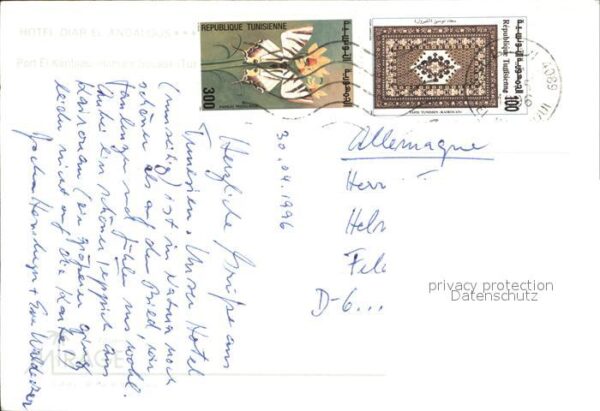 HOTEL DIAR EL ANDALOUS ****
Port El Kantaoui Hamam Sousse
REPUBLIQUE TUNISIENNE
300
République Tunisienne
100
30.04.1996
Herzliche Grüße aus
Tunesien. Unser Hotel
(umseitig) ist in Natura noch
schöner als auf dem Bild, wir
faulenzen und fühlen uns wohl.
Anbei ein schöner Teppich aus
Kairouan (ein größerer ging
leider nicht auf die Karte).
Allemagne
Herr
Hel
Fel
D-6...
privacy protection
Datenschutz
MIRAGE